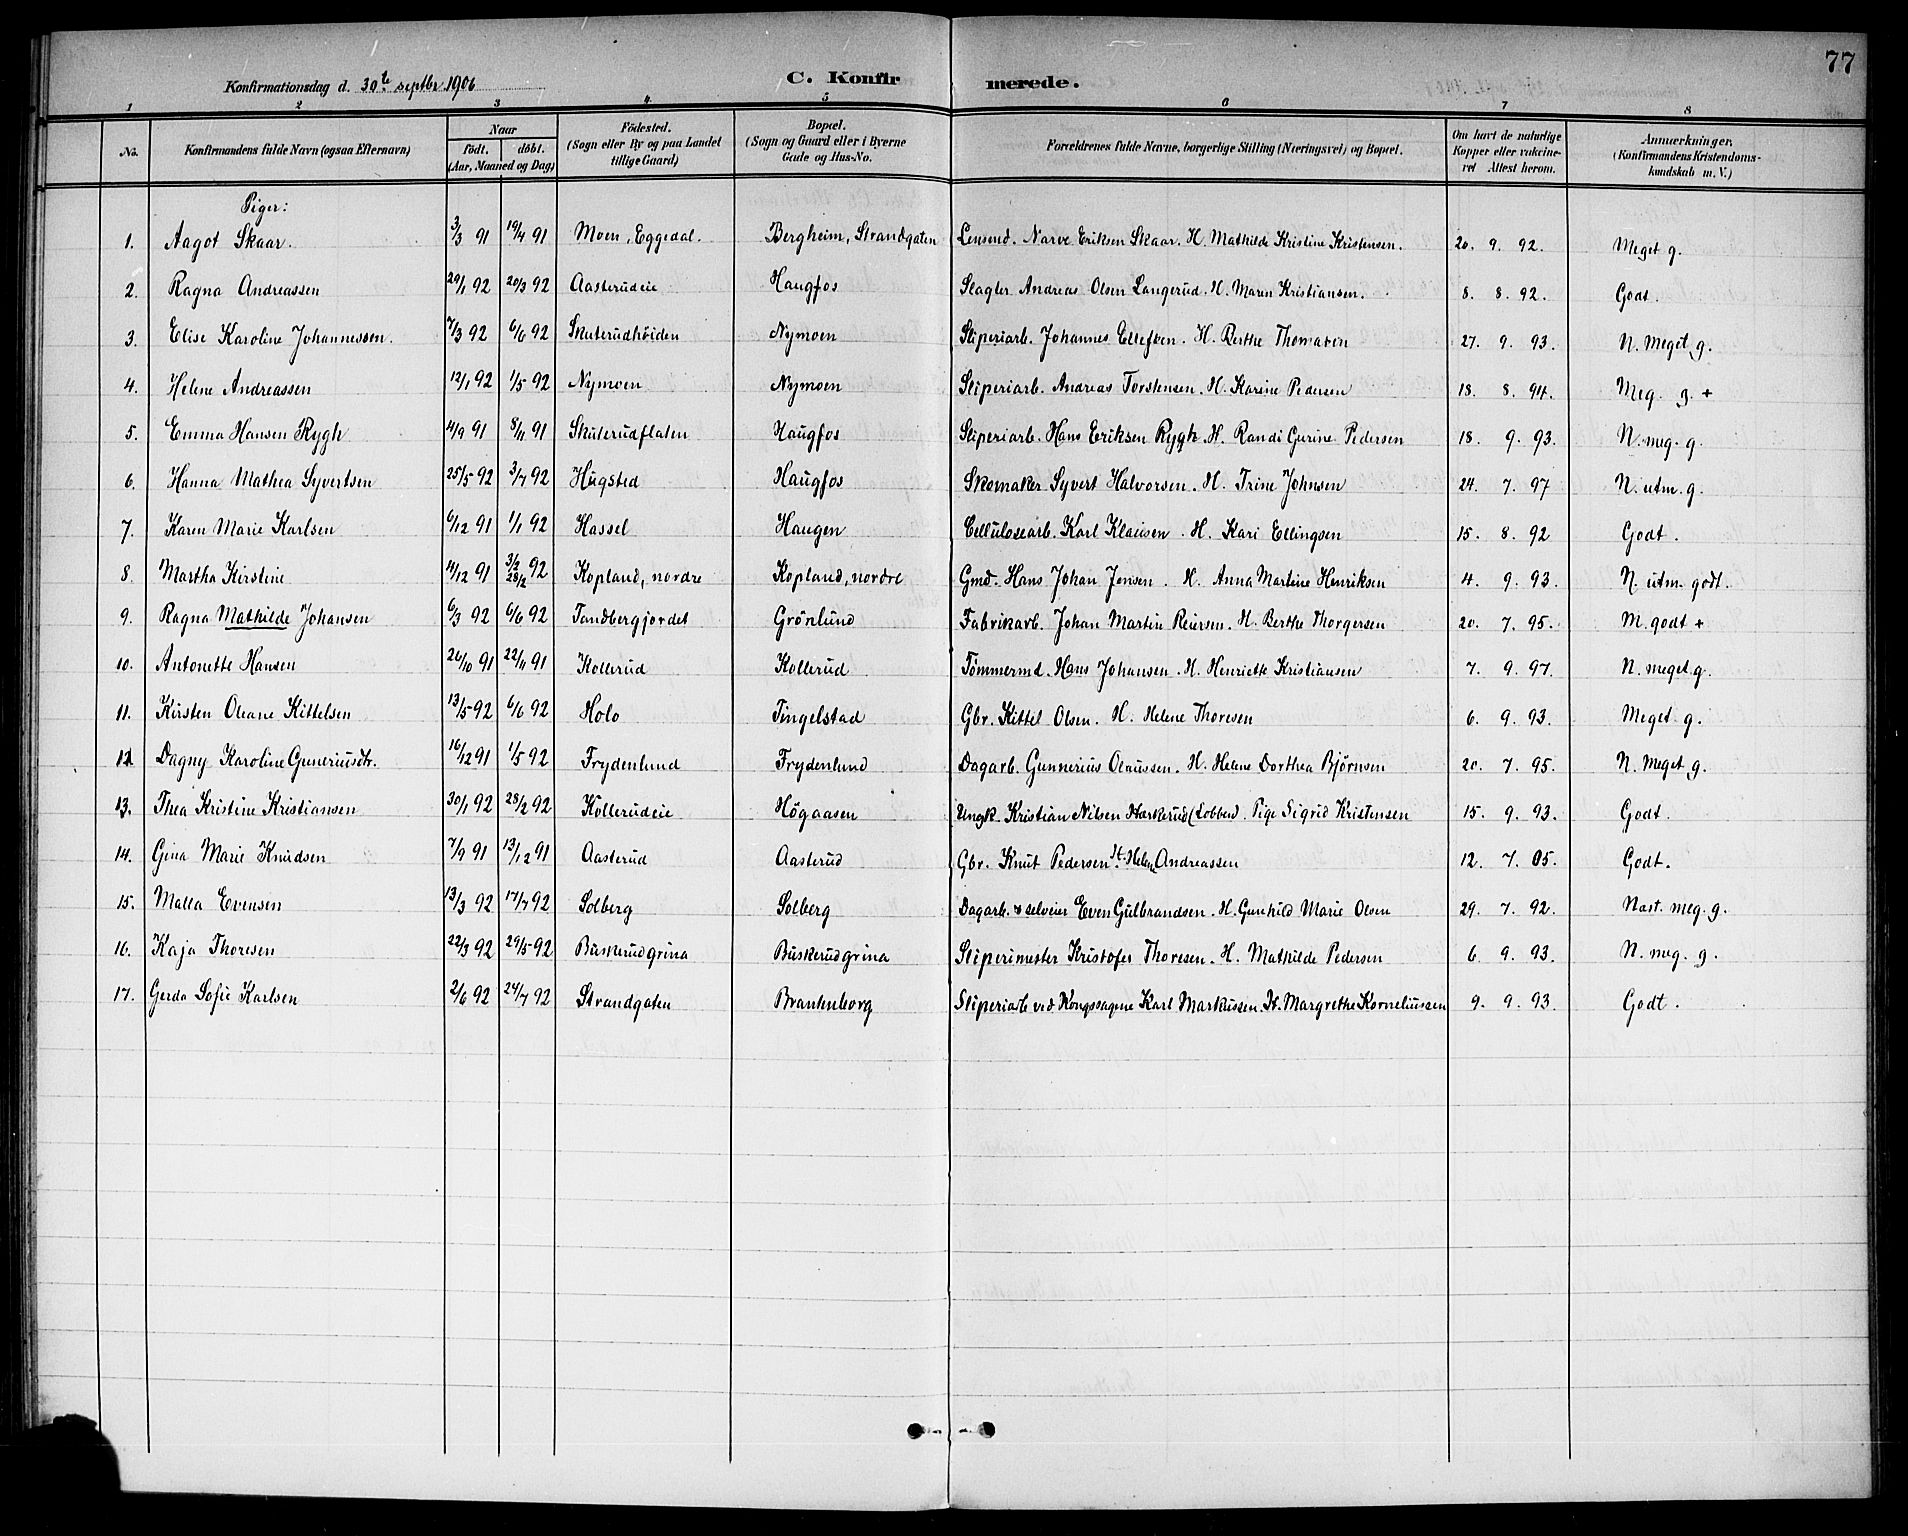 77
Konfirmationsdag d. 30te septbr 1906 C. Konfirmerede.
1 2 3 4 5 6 7 8
No. Konfirmandens fulde Navn (ogsaa Efternavn) Naar födt. döbt. (Aar, Maaned og Dag) Födested. (Sogn eller By og paa Landet tillige Gaard) Bopæl. (Sogn og Gaard eller i Byerne Gade og Hus-No. Forældrenes fulde Navne, borgerlige Stilling (Næringsvei) og Bopæl. Om havt de naturlige Kopper eller vaccineret Attest herom. Anmærkninger. (Konfirmandens Kristendomskundskab m. V.)
Piger:
1. Aagot Skaar. 3/3 91 19/4 91 Moen, Eggedal. Bergheim, Strandgaten Lensmd. Narve Eriksen Skaar. H. Mathilde Kristine Kristensen. 20. 9. 92. Meget g.
2. Ragna Andreassen 29/1 92 20/3 92 Aasterudeie Haugfos Slagter Andreas Olsen Langerud. H. Maren Kristiansen. 8. 8. 92. Godt.
3. Elise Karoline Johannessen. 7/3 92 6/6 92 Skuterudhöiden Nymoen Sliperiarb. Johannes Ellefsen. H. Berthe Thomasen 27. 9. 93. N. meget g.
4. Helene Andreassen 12/1 92 1/5 92 Nymoen Nymoen Sliperiarb. Andreas Torstensen. H. Karine Pedersen 18. 8. 94. Meg. g. +
5. Emma Hansen Rygh 4/9 91 8/11 91 Skuterudflaten Haugfos Sliperiarb. Hans Eriksen Rygh. H. Randi Gurine Pedersen 18. 9. 93. N. meg. g.
6. Hanna Mathea Syvertsen 25/5 92 3/7 92 Hugsted Haugfos Skomaker Syvert Halvorsen. H. Trine Johnsen 24. 7. 97 N. utm. g.
7. Karen Marie Karlsen 6/12 91 1/1 92 Hassel Haugen Cellulosearb. Karl Klausen. H. Kari Ellingsen 15. 8. 92 Godt.
8. Martha Kirstine 4/12 91 3/2 28/2 92 Kopland, nordre Kopland, nordre Gmd. Hans Johan Jensen. H. Anna Martine Henriksen 4. 9. 93. N. utm. godt.
9. Ragna Mathilde Johansen 6/3 92 6/6 92 Tandbergjordet Grönlund Fabrikarb. Johan Martin Reiersen. H. Berthe Thorgersen 20. 7. 95. M. godt +
10. Antonette Hansen 26/10 91 22/11 91 Kollerud Kollerud Tömmermd. Hans Johansen. H. Henriette Kristiansen 7. 9. 97. N. meget g.
11. Kirsten Oleane Kittelsen 13/5 92 6/6 92 Holo Tingelstad Gbr. Kittil Olsen. H. Helene Thoresen 6. 9. 93. Meget g.
12 Dagny Karoline Gunneriusdtr. 16/12 91 1/5 92 Frydenlund Frydenlund Dagarb. Gunnerius Olaussen. H. Helene Dorthea Bjørnsen 20. 7. 95. N. meget g.
13. Thea Kristine Kristiansen 30/1 92 28/2 92 Kollerudeie Högaasen Ungk. Kristian Nilsen Hærkerud Pige Sigrid Kristensen 15. 9. 93. Godt.
14. Gina Marie Knudsen 7/9 91 13/12 91 Aasterud Aasterud Gbr. Knut Pedersen H. Helene Andreassen 12. 7. 05. Godt.
15. Malla Evensen 13/3 92 17/7 92 Solberg Solberg Dagarb. & selveier Even Gulbrandsen. H. Gunhild Marie Olsen 29. 7. 92. Næst. meg. g.
16. Kaja Thoresen 22/3 92 29/5 92 Buskerudgrina Buskerudgrina Sliperimester Kristofer Thoresen. H. Mathilde Pedersen 6. 9. 93. N. meg. g.
17. Gerda Sofie Karlsen 2/6 92 24/7 92 Strandgaten Brantenborg Sliperiarb ved Kongssagene Karl Markussen. H. Margrethe Korneliussen 9. 9. 93. Godt.